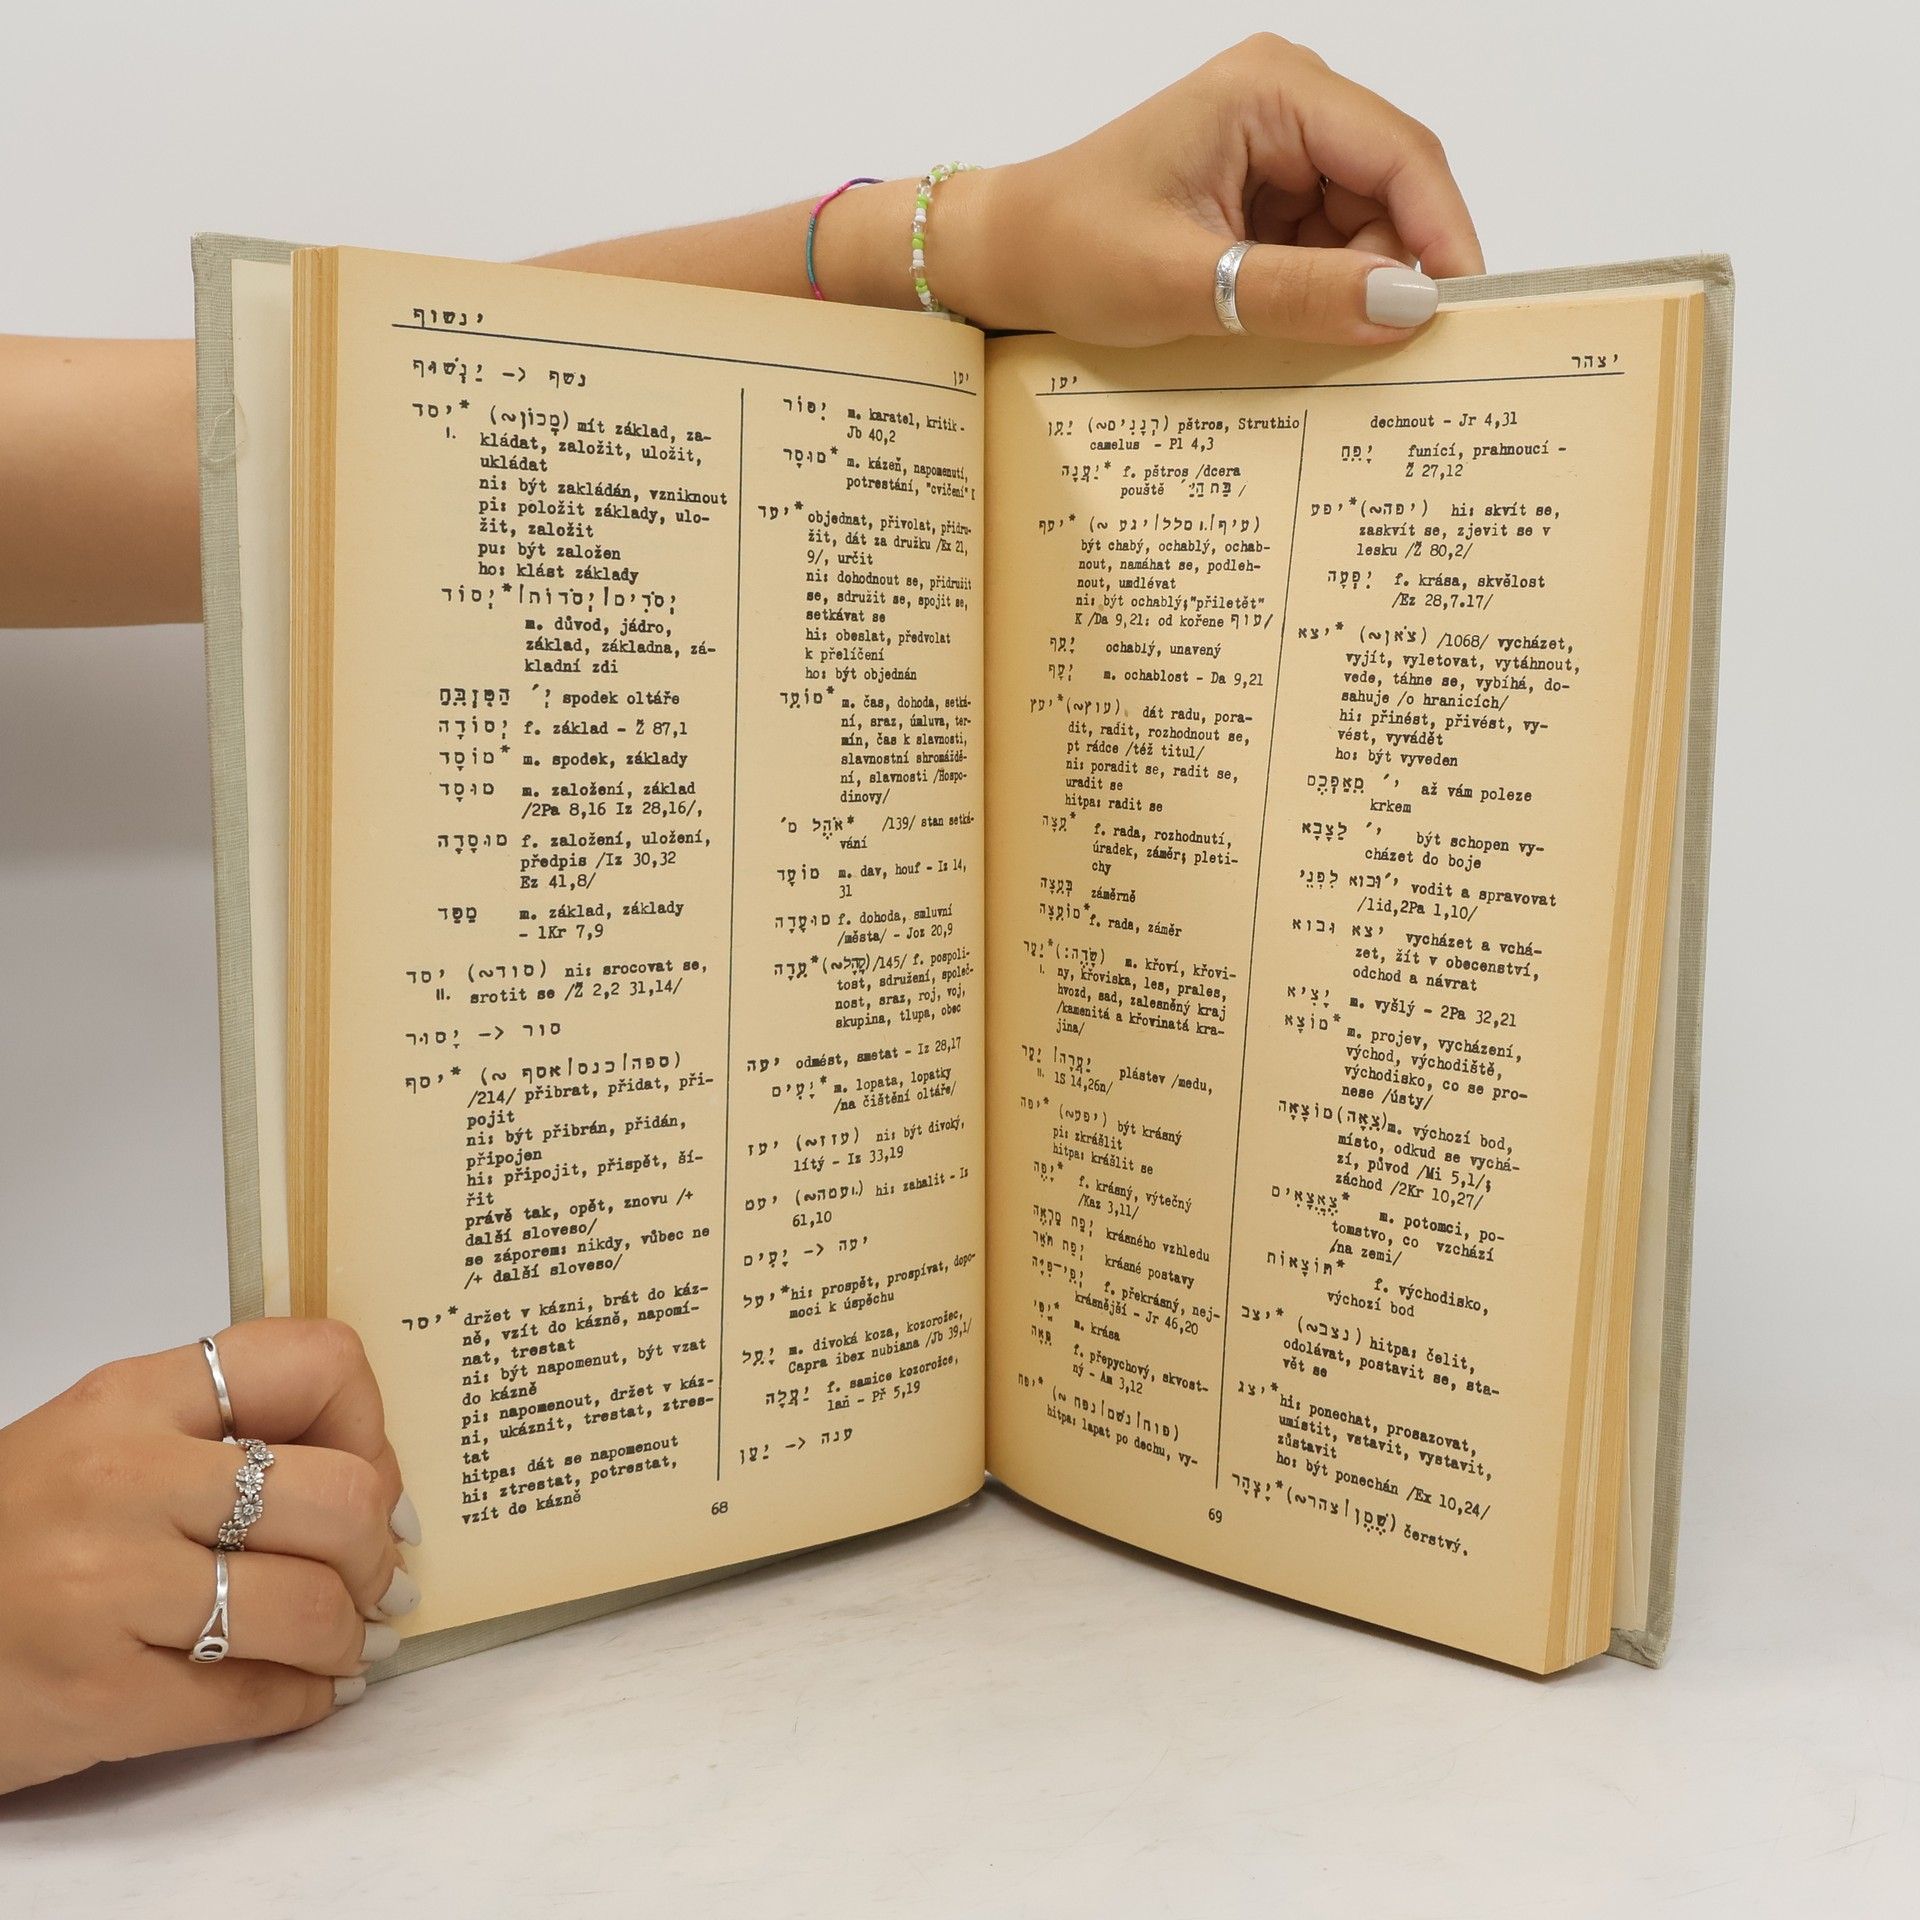 ינשוף
יען
יַנְשׁוּף <- נשף
יסד* (מָכוֹן~) mít základ, za-
I. kládat, založit, uložit,
ukládat
ni: být zakládán, vzniknout
pi: položit základy, ulo-
žit, založit
pu: být založen
ho: klást základy
יְסוֹד* יְסֹדִים|יְסֹדוֹת|
m. důvod, jádro,
základ, základna, zá-
kladní zdi
spodek oltáře
יְסוֹדָה f. základ - Ž 87,1
מוֹסָד* m. spodek, základy
מוּסָד m. založení, základ
/2Pa 8,16 Iz 28,16/,
מוּסָדָה f. založení, uložení,
předpis /Iz 30,32
Ez 41,8/
מַסָּד m. základ, základy
- 1Kr 7,9
יסד (סוד~) ni: srocovat se,
II. srotit se /Ž 2,2 31,14/
יָסוּר <- סור
יסף* (~ אסף|כנס|ספה)
/214/ přibrat, přidat, při-
pojit
ni: být přibrán, přidán,
připojen
hi: připojit, přispět, ší-
řit
právě tak, opět, znovu /+
další sloveso/
se záporem: nikdy, vůbec ne
/+ další sloveso/
יסר* držet v kázni, brát do káz-
ně, vzít do kázně, napomí-
nat, trestat
ni: být napomenut, být vzat
do kázně
pi: napomenout, držet v káz-
ni, ukáznit, trestat, ztres-
tat
hitpa: dát se napomenout
hi: ztrestat, potrestat,
vzít do kázně
יִסּוֹר m. karatel, kritik -
Jb 40,2
מוּסָר* m. kázeň, napomenutí,
potrestání, "cvičení"
יעד* objednat, přivolat, přidru-
žit, dát za družku /Ex 21,
9/, určit
ni: dohodnout se, přidružit
se, sdružit se, spojit se,
setkávat se
hi: obeslat, předvolat
k přelíčení
ho: být objednán
מוֹעֵד* m. čas, dohoda, setká-
ní, sraz, úmluva, ter-
mín, čas k slavnosti,
slavnostní shromáždě-
ní, slavnosti /Hospo-
dinovy/
אֹהֶל מ׳* /139/ stan setká-
vání
מוֹעָד m. dav, houf - Iz 14,
31
מוּעָדָה f. dohoda, smluvní
/města/ - Joz 20,9
עֵדָה* (קָהָל~) /145/ f. pospoli-
tost, sdružení, společ-
nost, sraz, roj, voj,
skupina, tlupa, obec
יעה odmést, smetat - Iz 28,17
יָעִים* m. lopata, lopatky
/na čištění oltáře/
יעז (עזז~) ni: být divoký,
lítý - Iz 33,19
יעט (עטה~) hi: zahalit - Iz
61,10
יָעִים <- יעה
יעל* hi: prospět, prospívat, dopo-
moci k úspěchu
יָעֵל m. divoká koza, kozorožec,
Capra ibex nubiana /Jb 39,1/
יַעֲלָה f. samice kozorožce,
laň - Př 5,19
יַעַן <- ענה
68
יען
יצהר
יָעֵן (רְנָנִים~) pštros, Struthio
camelus - Pl 4,3
יַעֲנָה* f. pštros /dcera
pouště בַּת הַיַּ׳ /
יעף* (~ יגע|סלל.ו|עיף)
být chabý, ochablý, ochab-
nout, namáhat se, podleh-
nout, umdlévat
ni: být ochablý;"přiletět"
K /Da 9,21: od kořene עוף/
יָעֵף ochablý, unavený
יְעָף m. ochablost - Da 9,21
יעץ* (עוץ~) dát radu, pora-
dit, radit, rozhodnout se,
pt rádce /též titul/
ni: poradit se, radit se,
uradit se
hitpa: radit se
עֵצָה* f. rada, rozhodnutí,
úradek, záměr; pleti-
chy
בְּעֵצָה záměrně
מוֹעֵצָה* f. rada, záměr
יַעַר* (שָׂדֶה:) m. křoví, křovi-
I. ny, křoviska, les, prales,
hvozd, sad, zalesněný kraj
/kamenitá a křovinatá kra-
jina/
יַעַר |יַעְרָה plástev /medu,
II. 1S 14,26n/
יפה* (יפע~) být krásný
pi: zkrášlit
hitpa: krášlit se
יָפֶה* f. krásný, výtečný
/Kaz 3,11/
יְפַת מַרְאֶה krásného vzhledu
יְפַת תֹּאַר krásné postavy
יְפֵי־פִיָּה f. překrásný, nej-
krásnější - Jr 46,20
יֳפִי* m. krása
f. přepychový, skvost-
ný - Am 3,12
יפח* (~ נפח|נשם|פוח)
hitpa: lapat po dechu, vy-
dechnout - Jr 4,31
יָפֵחַ funící, prahnoucí -
Ž 27,12
יפע* (יפה~) hi: skvít se,
zaskvít se, zjevit se v
lesku /Ž 80,2/
יִפְעָה f. krása, skvělost
/Ez 28,7.17/
יצא* (צֹאן~) /1068/ vycházet,
vyjít, vyletovat, vytáhnout,
vede, táhne se, vybíhá, do-
sahuje /o hranicích/
hi: přinést, přivést, vy-
vést, vyvádět
ho: být vyveden
י׳ מֵאַפְּכֶם až vám poleze
krkem
י׳ לַצָּבָא být schopen vy-
cházet do boje
י׳ וּבוֹא לִפְנֵי vodit a spravovat
/lid,2Pa 1,10/
יצא ובוא vycházet a vchá-
zet, žít v obecenství,
odchod a návrat
יָצִיא m. vyšlý - 2Pa 32,21
מוֹצָא* m. projev, vycházení,
východ, východiště,
východisko, co se pro-
nese /ústy/
מוֹצָאָה (צֵאָה) m. výchozí bod,
místo, odkud se vychá-
zí, původ /Mi 5,1/;
záchod /2Kr 10,27/
צֶאֱצָאִים* m. potomci, po-
tomstvo, co vzchází
/na zemi/
תּוֹצָאוֹת* f. východisko,
výchozí bod
יצב* (נצב~) hitpa: čelit,
odolávat, postavit se, sta-
vět se
יצג* hi: ponechat, prosazovat,
umístit, vstavit, vystavit,
zůstavit
ho: být ponechán /Ex 10,24/
יִצְהָר* (~צהר|שֶׁמֶן) čerstvý.
69